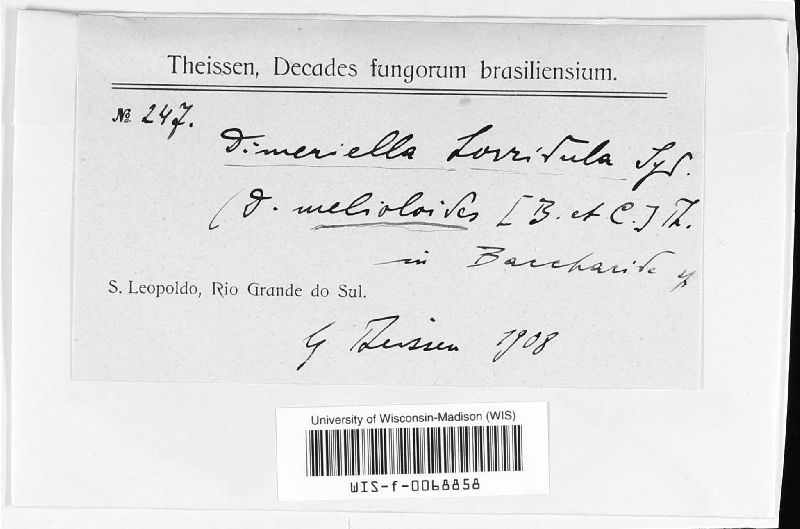 Theissen, Decades fungorum brasiliensium.
№ 247.
Dimeriella horridula Syd.
(D. melioloides [B. et C.] Th.
in Baccharide sp
S. Leopoldo, Rio Grande do Sul.
G Theissen 1908
University of Wisconsin-Madison (WIS)
WIS-f-0068858